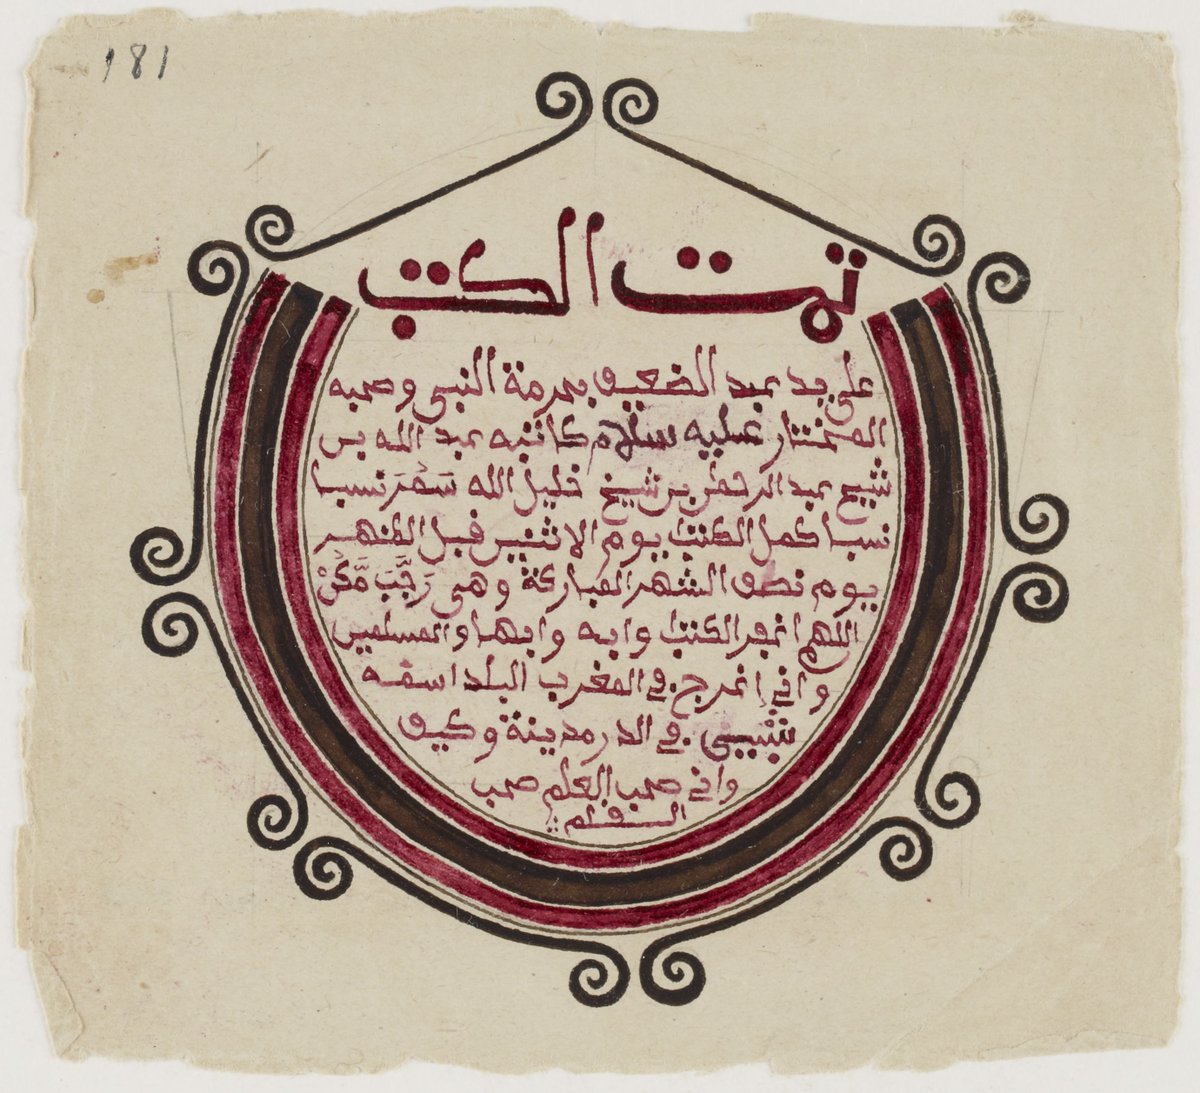 181
تمت الكتب
على يد عبد الضعيف بحرمة النبي وصحبه
المختار عليه سلام كاتبه عبد الله بن
شيخ عبد الرحمن بن شيخ خليل الله سَمَرَ نسبا
نسبا كمل الكتب يوم الاثنين قبل الظهر
يوم نصف الشهر المباركة وهي رَجَبَ
اللهم اغفر الكتب وابه وابها والمسلمين
واني اخرج في المغرب البلد اسفه
في الدر مدينة وكيف
واني صحب العلم صحب
القلم